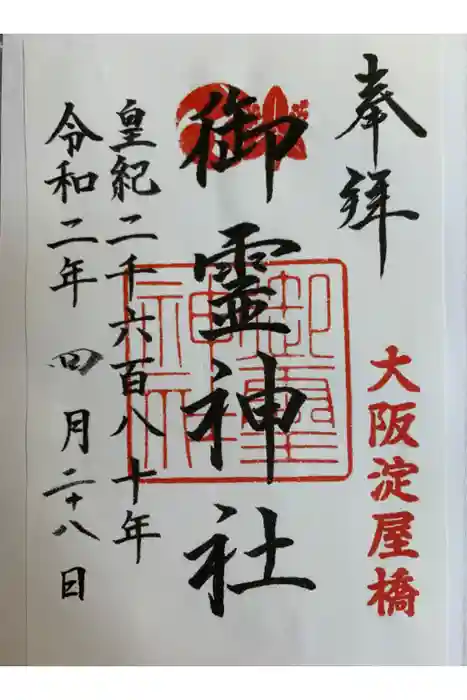 奉拝
大阪淀屋橋
御霊神社
御霊神社
皇紀二千六百八十年
令和二年 四月二十八日